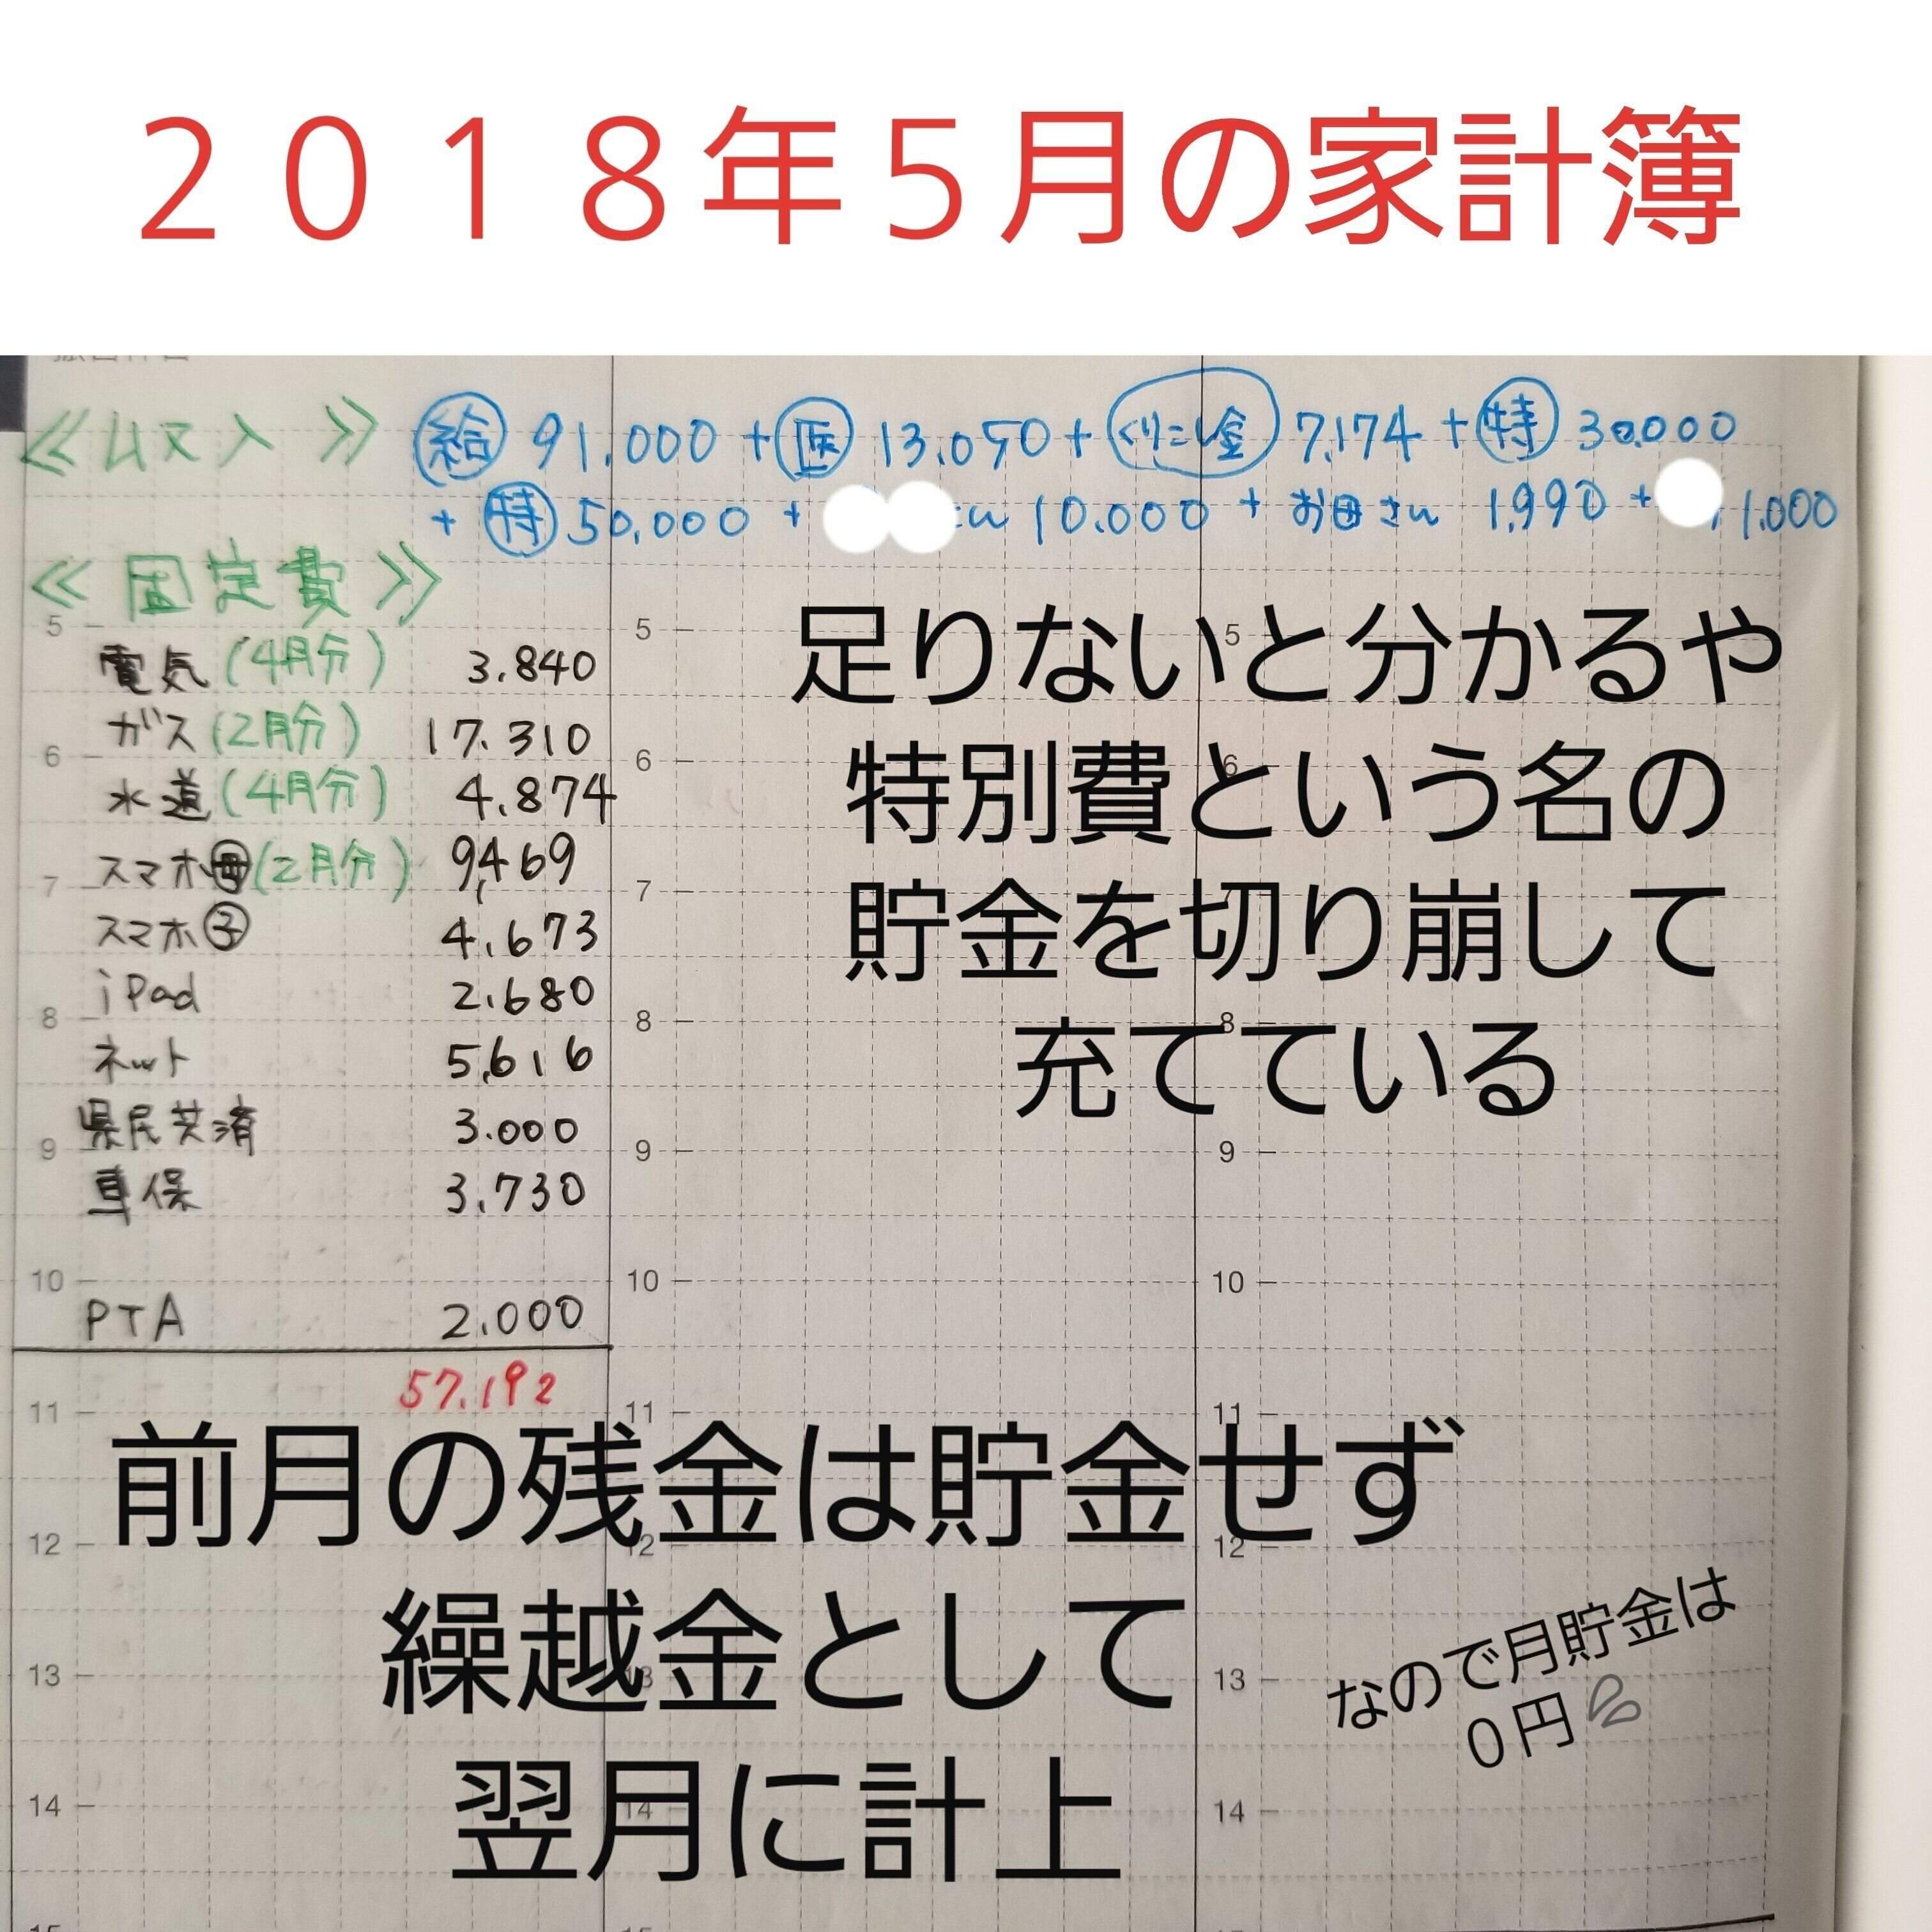 ２０１８年５月の家計簿
≪収入≫ 給 91,000 + 医 13,050 + くりこし金 7,174 + 特 30,000
+ 特 50,000 + ん 10,000 + お母さん 1,990 + 1,000
≪固定費≫
電気(4月分) 3,840
ガス(2月分) 17,310
水道(4月分) 4,874
スマホ母(2月分) 9,469
スマホ子 4,673
iPad 2,680
ネット 5,616
県民共済 3,000
車保 3,730
PTA 2,000
57,192
足りないと分かるや
特別費という名の
貯金を切り崩して
充てている
前月の残金は貯金せず
繰越金として
翌月に計上
なので月貯金は
０円💦
5 5 5
6 6 6
7 7
8 8 8
9 9 9
10 10 10
11 11 11
12 12 12
13 13 13
14 14 14